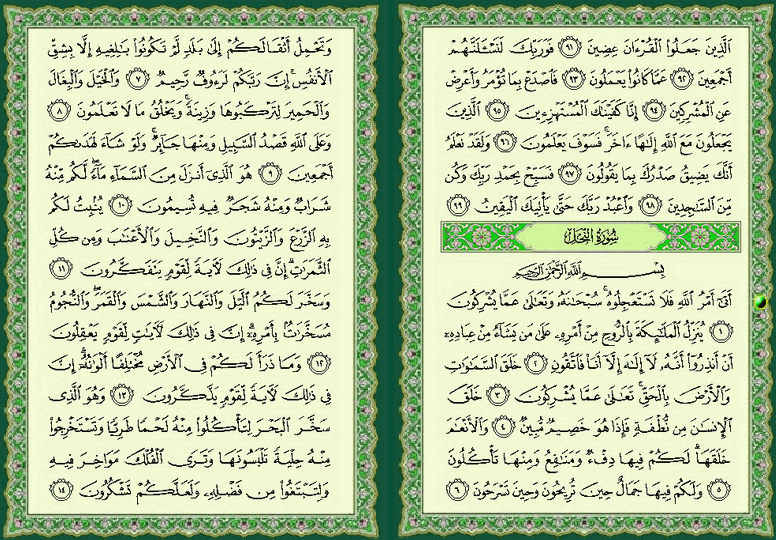 الَّذِينَ جَعَلُوا الْقُرْءَانَ عِضِينَ ﴿٩١﴾ فَوَرَبِّكَ لَنَسْـَٔلَنَّهُمْ
أَجْمَعِينَ ﴿٩٢﴾ عَمَّا كَانُوا يَعْمَلُونَ ﴿٩٣﴾ فَاصْدَعْ بِمَا تُؤْمَرُ وَأَعْرِضْ
عَنِ الْمُشْرِكِينَ ﴿٩٤﴾ إِنَّا كَفَيْنَاكَ الْمُسْتَهْزِءِينَ ﴿٩٥﴾ الَّذِينَ
يَجْعَلُونَ مَعَ اللَّهِ إِلَٰهًا ءَاخَرَ ۚ فَسَوْفَ يَعْلَمُونَ ﴿٩٦﴾ وَلَقَدْ نَعْلَمُ
أَنَّكَ يَضِيقُ صَدْرُكَ بِمَا يَقُولُونَ ﴿٩٧﴾ فَسَبِّحْ بِحَمْدِ رَبِّكَ وَكُن
مِّنَ السَّاجِدِينَ ﴿٩٨﴾ وَاعْبُدْ رَبَّكَ حَتَّىٰ يَأْتِيَكَ الْيَقِينُ ﴿٩٩﴾
سُورَةُ النَّحْلِ
بِسْمِ اللَّهِ الرَّحْمَٰنِ الرَّحِيمِ
أَتَىٰ أَمْرُ اللَّهِ فَلَا تَسْتَعْجِلُوهُ ۚ سُبْحَانَهُ وَتَعَالَىٰ عَمَّا يُشْرِكُونَ
﴿١﴾ يُنَزِّلُ الْمَلَائِكَةَ بِالرُّوحِ مِنْ أَمْرِهِ عَلَىٰ مَن يَشَاءُ مِنْ عِبَادِهِ
أَنْ أَنذِرُوا أَنَّهُ لَا إِلَٰهَ إِلَّا أَنَا فَاتَّقُونِ ﴿٢﴾ خَلَقَ السَّمَاوَاتِ
وَالْأَرْضَ بِالْحَقِّ ۚ تَعَالَىٰ عَمَّا يُشْرِكُونَ ﴿٣﴾ خَلَقَ
الْإِنسَانَ مِن نُّطْفَةٍ فَإِذَا هُوَ خَصِيمٌ مُّبِينٌ ﴿٤﴾ وَالْأَنْعَامَ
خَلَقَهَا ۗ لَكُمْ فِيهَا دِفْءٌ وَمَنَافِعُ وَمِنْهَا تَأْكُلُونَ
﴿٥﴾ وَلَكُمْ فِيهَا جَمَالٌ حِينَ تُرِيحُونَ وَحِينَ تَسْرَحُونَ ﴿٦﴾
وَتَحْمِلُ أَثْقَالَكُمْ إِلَىٰ بَلَدٍ لَّمْ تَكُونُوا بَالِغِيهِ إِلَّا بِشِقِّ
الْأَنفُسِ ۚ إِنَّ رَبَّكُمْ لَرَءُوفٌ رَّحِيمٌ ﴿٧﴾ وَالْخَيْلَ وَالْبِغَالَ
وَالْحَمِيرَ لِتَرْكَبُوهَا وَزِينَةً ۚ وَيَخْلُقُ مَا لَا تَعْلَمُونَ ﴿٨﴾
وَعَلَى اللَّهِ قَصْدُ السَّبِيلِ وَمِنْهَا جَائِرٌ ۚ وَلَوْ شَاءَ لَهَدَاكُمْ
أَجْمَعِينَ ﴿٩﴾ هُوَ الَّذِي أَنزَلَ مِنَ السَّمَاءِ مَاءً ۖ لَّكُم مِّنْهُ
شَرَابٌ وَمِنْهُ شَجَرٌ فِيهِ تُسِيمُونَ ﴿١٠﴾ يُنبِتُ لَكُم
بِهِ الزَّرْعَ وَالزَّيْتُونَ وَالنَّخِيلَ وَالْأَعْنَابَ وَمِن كُلِّ
الثَّمَرَاتِ ۗ إِنَّ فِي ذَٰلِكَ لَآيَةً لِّقَوْمٍ يَتَفَكَّرُونَ ﴿١١﴾
وَسَخَّرَ لَكُمُ اللَّيْلَ وَالنَّهَارَ وَالشَّمْسَ وَالْقَمَرَ ۖ وَالنُّجُومُ
مُسَخَّرَاتٌ بِأَمْرِهِ ۗ إِنَّ فِي ذَٰلِكَ لَآيَاتٍ لِّقَوْمٍ يَعْقِلُونَ
﴿١٢﴾ وَمَا ذَرَأَ لَكُمْ فِي الْأَرْضِ مُخْتَلِفًا أَلْوَانُهُ ۗ إِنَّ
فِي ذَٰلِكَ لَآيَةً لِّقَوْمٍ يَذَّكَّرُونَ ﴿١٣﴾ وَهُوَ الَّذِي
سَخَّرَ الْبَحْرَ لِتَأْكُلُوا مِنْهُ لَحْمًا طَرِيًّا وَتَسْتَخْرِجُوا
مِنْهُ حِلْيَةً تَلْبَسُونَهَا وَتَرَى الْفُلْكَ مَوَاخِرَ فِيهِ
وَلِتَبْتَغُوا مِن فَضْلِهِ وَلَعَلَّكُمْ تَشْكُرُونَ ﴿١٤﴾